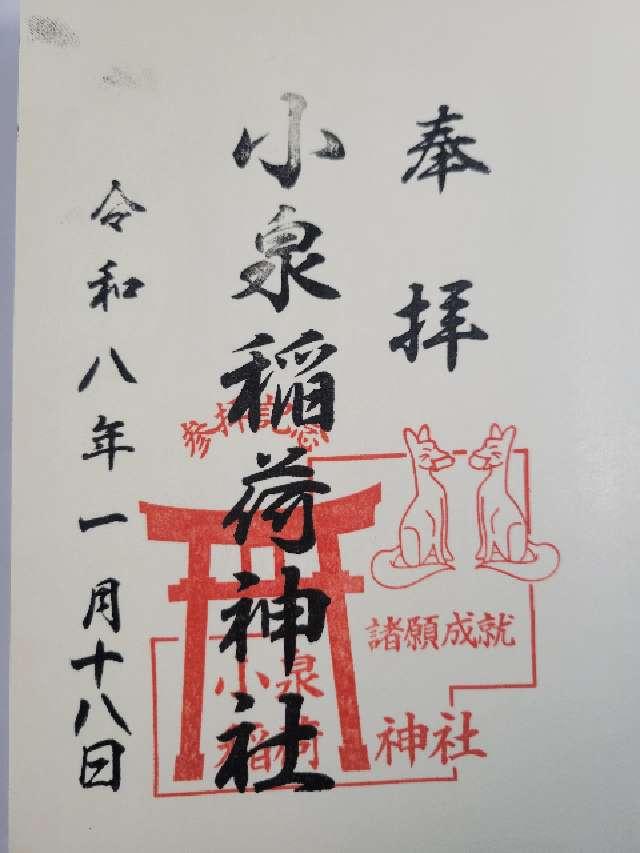 奉拝
小泉稲荷神社
令和八年一月十八日
参拝記念
諸願成就
小泉
稲荷
神社